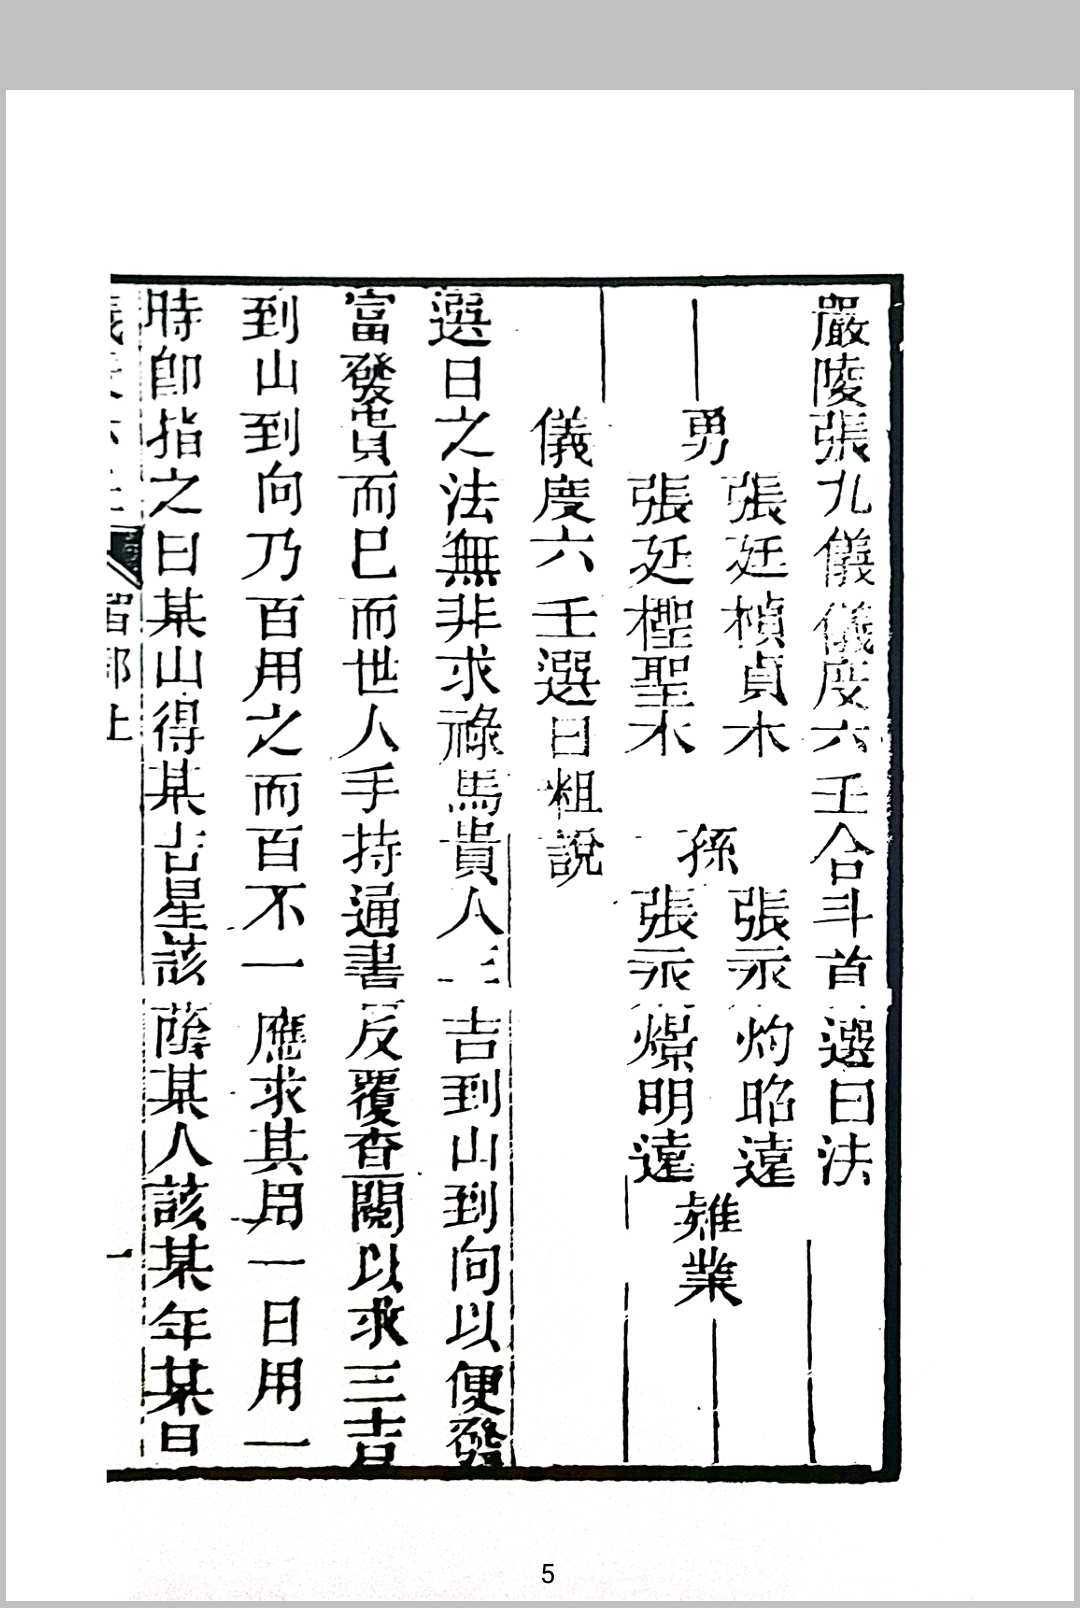 嚴陵張九儀儀度六壬合斗首選日法
張廷楨貞木
張永灼昭遠
勇
孫
業
張廷檉聖木
張永燝明遠
儀度六壬選日粗說
選日之法無非求祿馬貴人三吉到山到向以便發
富發貴而已而世人手持通書反覆查閱以求三吉
到山到向乃百用之而百不一應求其用一日用一
時卽指之曰某山得某吉星該蔭某人該某年某日
5